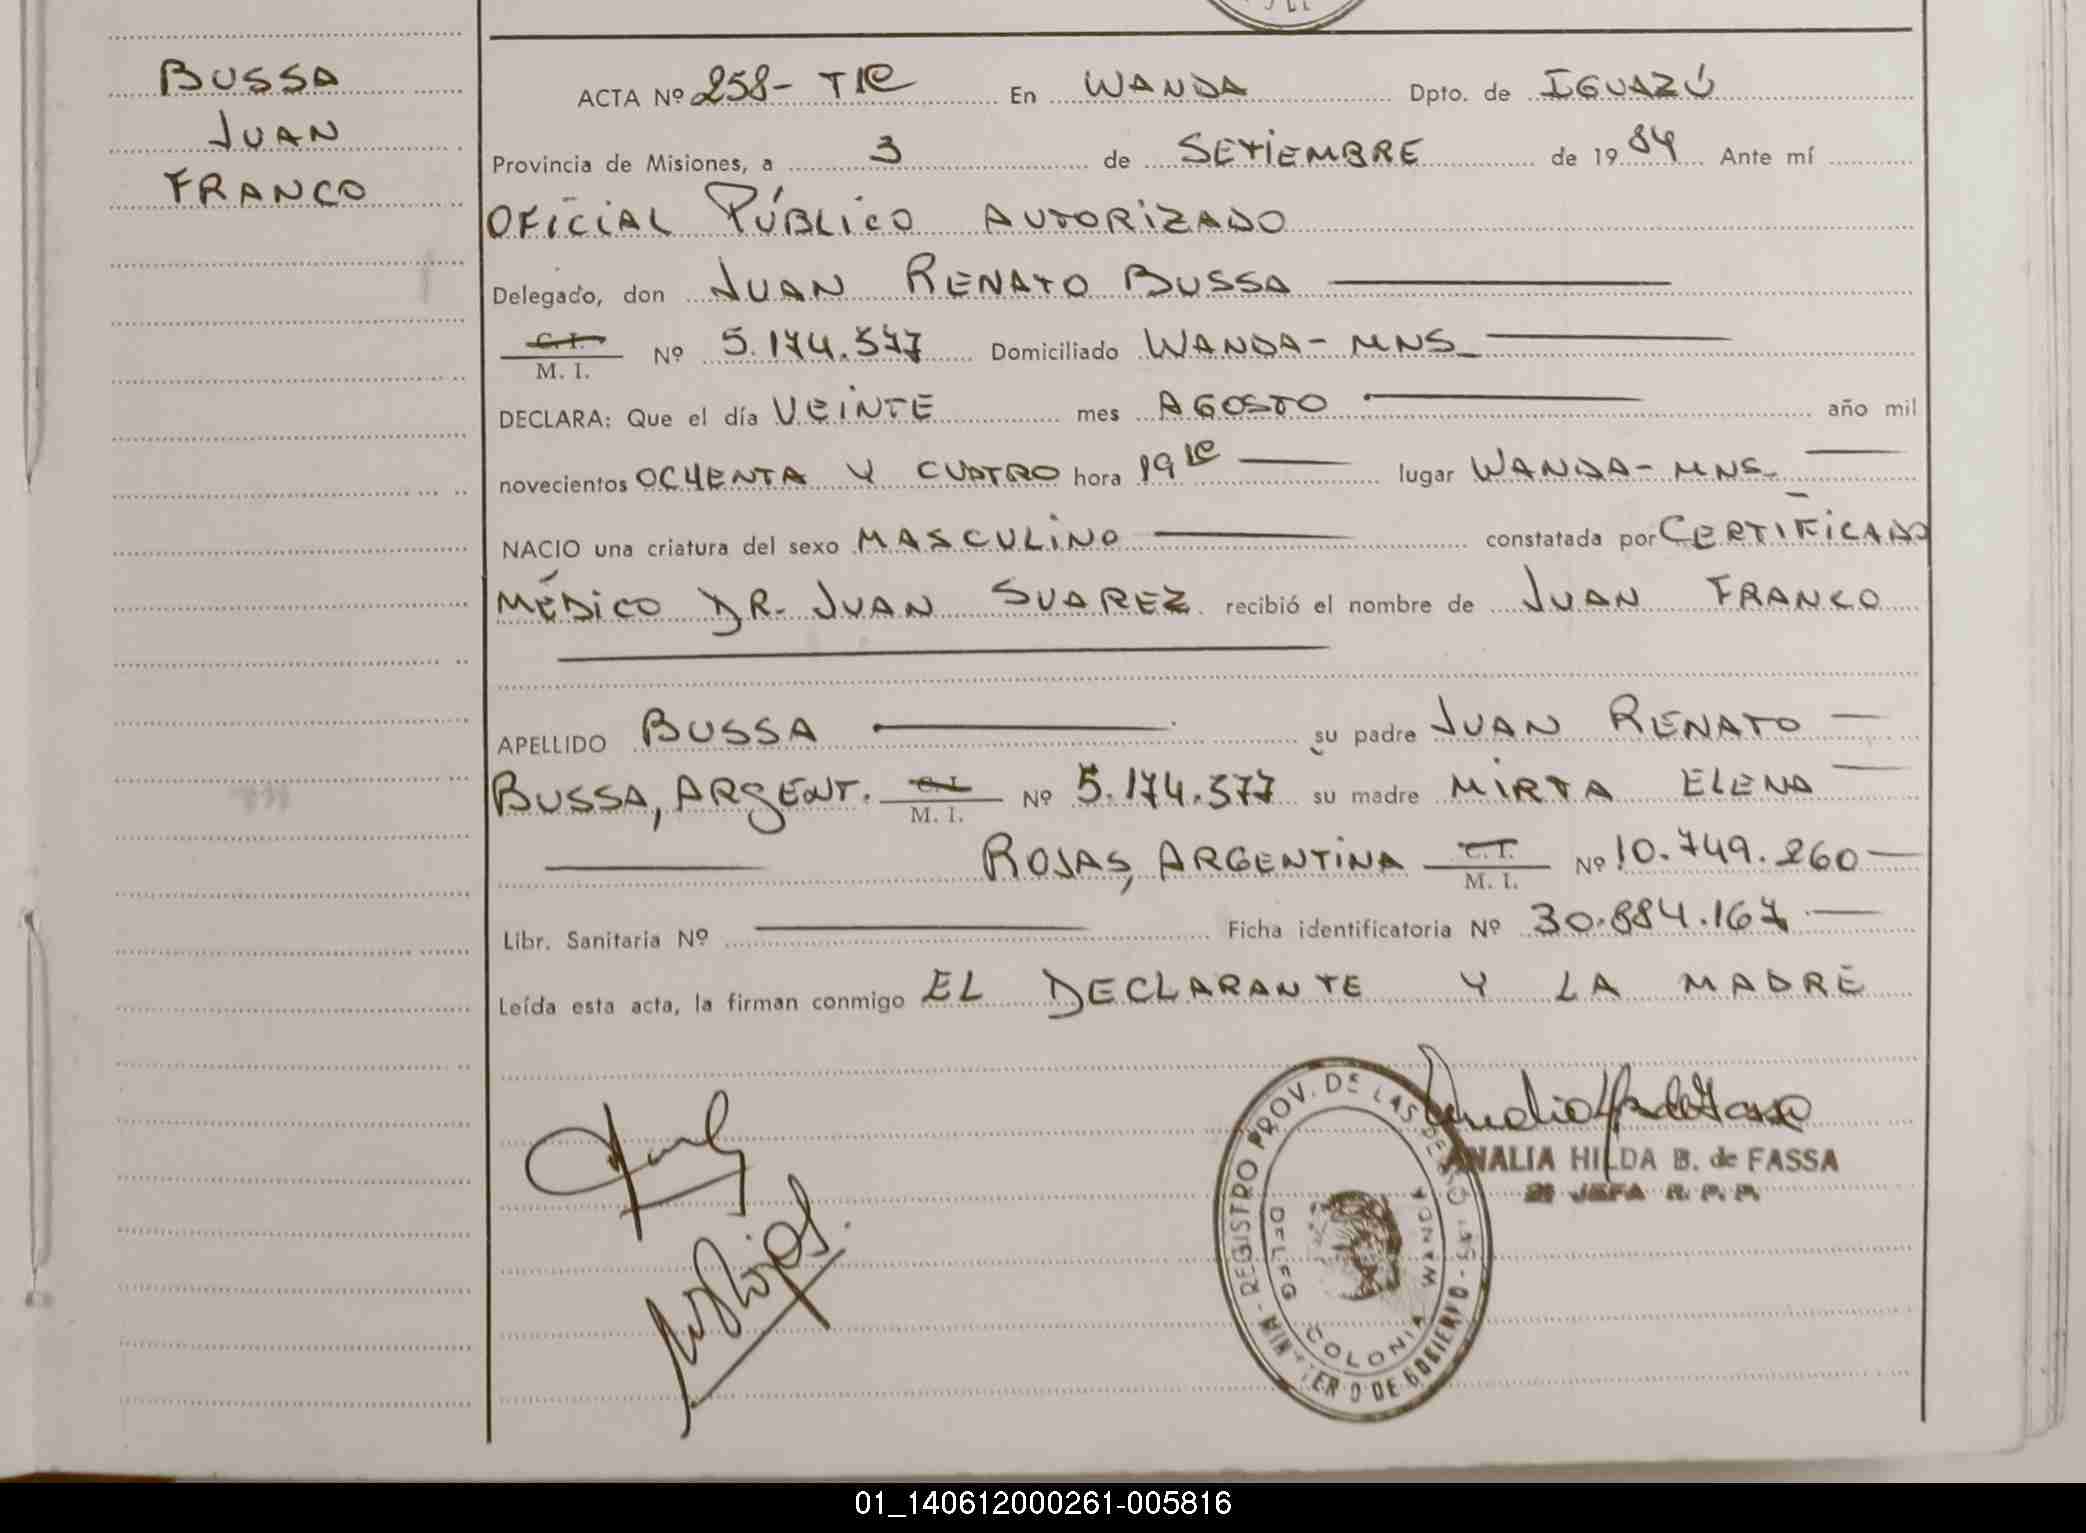 BUSSA
JUAN
FRANCO
ACTA Nº 258- TIC En WANDA Dpto. de IGUAZÚ
Provincia de Misiones, a 3 de SETIEMBRE de 1984 Ante mí
OFICIAL PÚBLICO AUTORIZADO
Delegado, don JUAN RENATO BUSSA
C. I. M. I. Nº 5.174.577 Domiciliado WANDA- MNS_
DECLARA: Que el día VEINTE mes AGOSTO año mil
novecientos OCHENTA Y CUATRO hora 19 lugar WANDA- MNS_
NACIO una criatura del sexo MASCULINO constatada por CERTIFICADO
MÉDICO DR. JUAN SUAREZ recibió el nombre de JUAN FRANCO
APELLIDO BUSSA su padre JUAN RENATO
BUSSA, ARGENT. C. I. M. I. Nº 5.174.577 su madre MIRTA ELENA
ROJAS, ARGENTINA C. I. M. I. Nº 10.749.260
Libr. Sanitaria Nº Ficha identificatoria Nº 30.884.167
Leída esta acta, la firman conmigo EL DECLARANTE Y LA MADRE
REGISTRO PROV. DE LAS PERSONAS - MINISTERIO DE GOBIERNO -
DELEG COLONIA WANDA
ANALIA HILDA B. de FASSA
JEFA R. P. P.
01_140612000261-005816